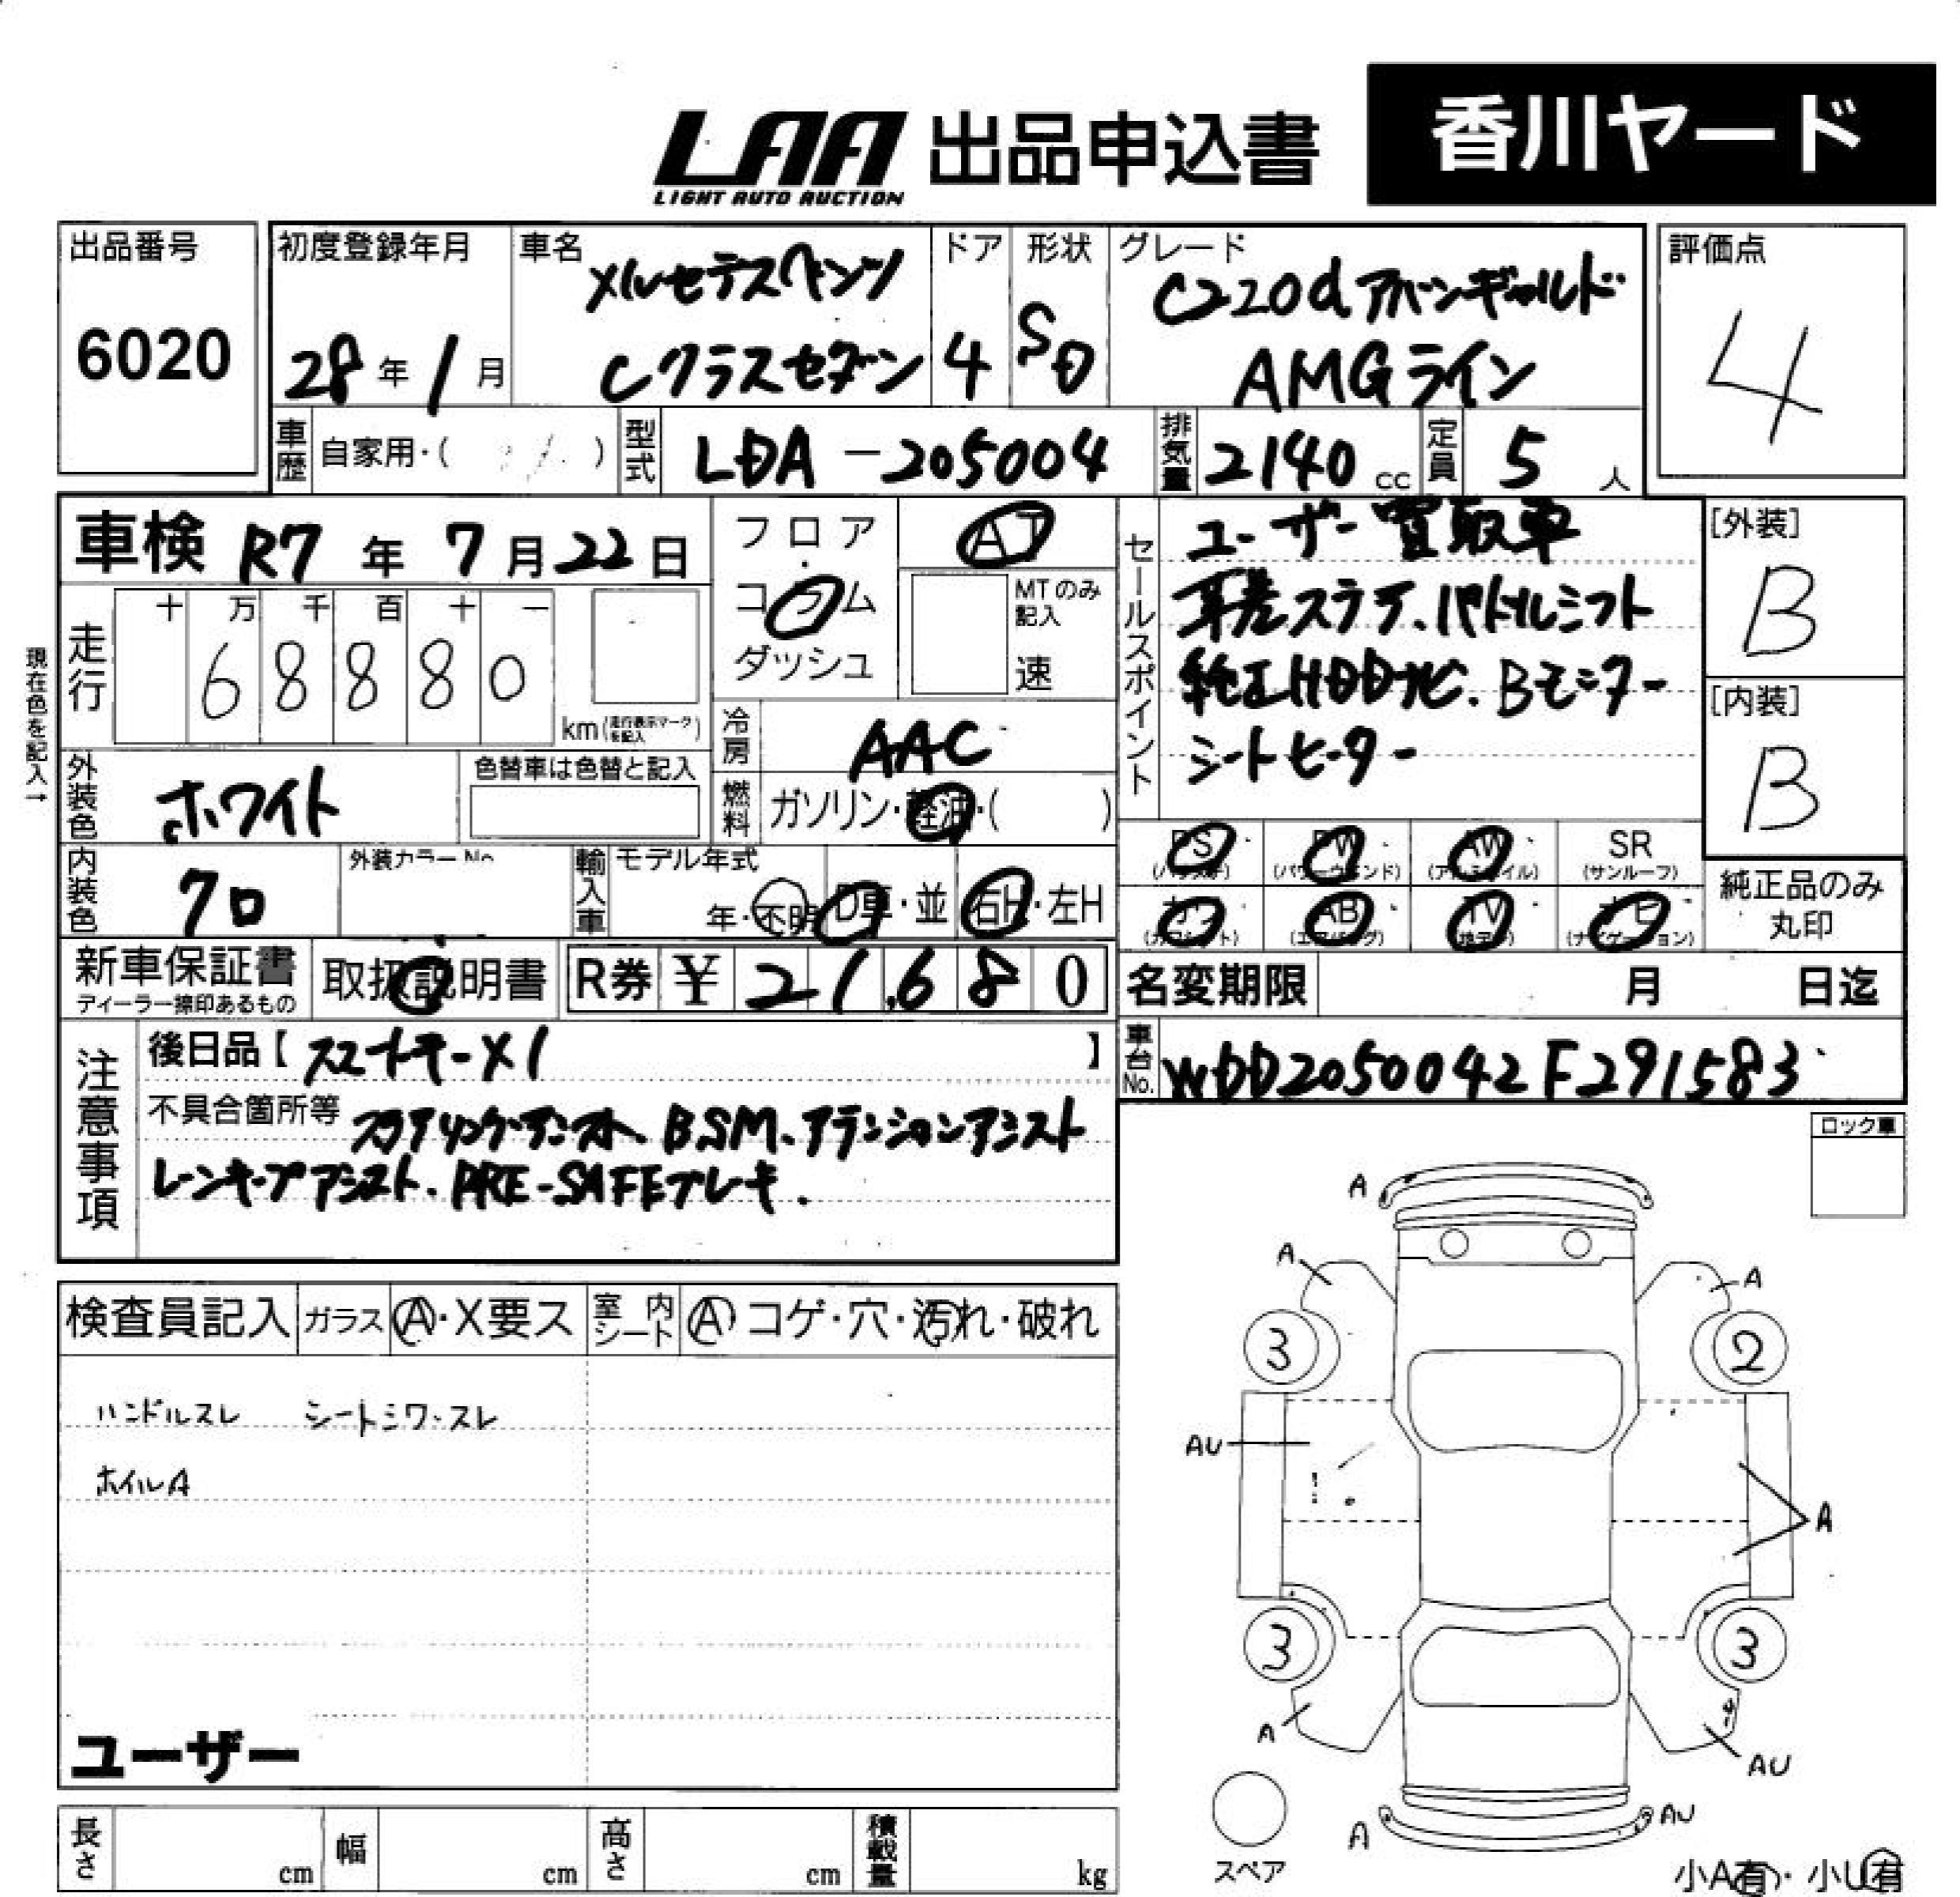 LAA 出品申込書 香川ヤード
LIGHT AUTO AUCTION
出品番号 初度登録年月 車名 ドア 形状 グレード 評価点
メルセデスベンツ C220dアバンギャルド
6020 28年1月 Cクラスセダン 4 SD AMGライン 4
車歴 自家用・( ) 型式 LDA-205004 排気量 2140 cc 定員 5 人
車検 R7年7月22日 フロア・コラム ダッシュ AT
MTのみ記入 速
セールスポイント ユーザー買取車
革巻ステア、パドルシフト
純正HDDナビ、Bモニター
シートヒーター
[外装] B
[内装] B
現在色を記入→
走行 十 万 千 百 十 一
6 8 8 8 0 km(走行表示マークを記入)
冷房 AAC
外装色 ホワイト 色替車は色替と記入 燃料 ガソリン・軽油・( )
PS・ PW・ AW・ SR
(パワステ) (パワーウインド) (アルミホイル) (サンルーフ)
内装色 クロ 外装カラーNo. 輸入車 モデル年式 年・不明 D車・並 右H・左H
カワ・ AB・ TV・ ナビ・
(カワシート) (エアバッグ) (地デジ) (ナビゲーション)
純正品のみ丸印
新車保証書 取扱説明書 R券 ¥21,680 名変期限 月 日迄
ディーラー捺印あるもの
車台No. WDD2050042F291583
注意事項 後日品【スマートキー×1】
不具合箇所等 ステアリングアシスト、BSM、アテンションアシスト
レーンキープアシスト、PRE-SAFEブレーキ.
ロック車
検査員記入 ガラス A・X要ス 室内シート A コゲ・穴・汚れ・破れ
ハンドルスレ シートシワ・スレ
ホイルA
ユーザー
A
A A
3 2
AU
A
3 3
A AU
A AU
スペア
小A有・小U有
長さ cm 幅 cm 高さ cm 積載量 kg